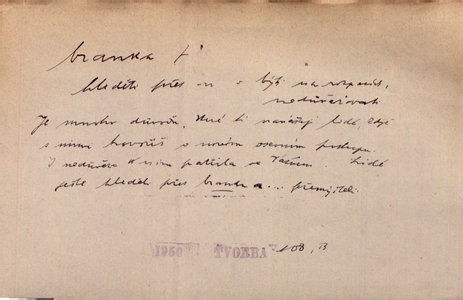 branka f
hleděti přes n o býti na rozpacích,
nedůvěřovati
Je mnoho důvodů, které ti lidé, když
s nimi hovoříš o novém osevním postupu.
I nedůvěra k nim patřila ve Lidé
ještě hleděli přes branku a... přemýšleli.
1950 TVORBA 108, 13